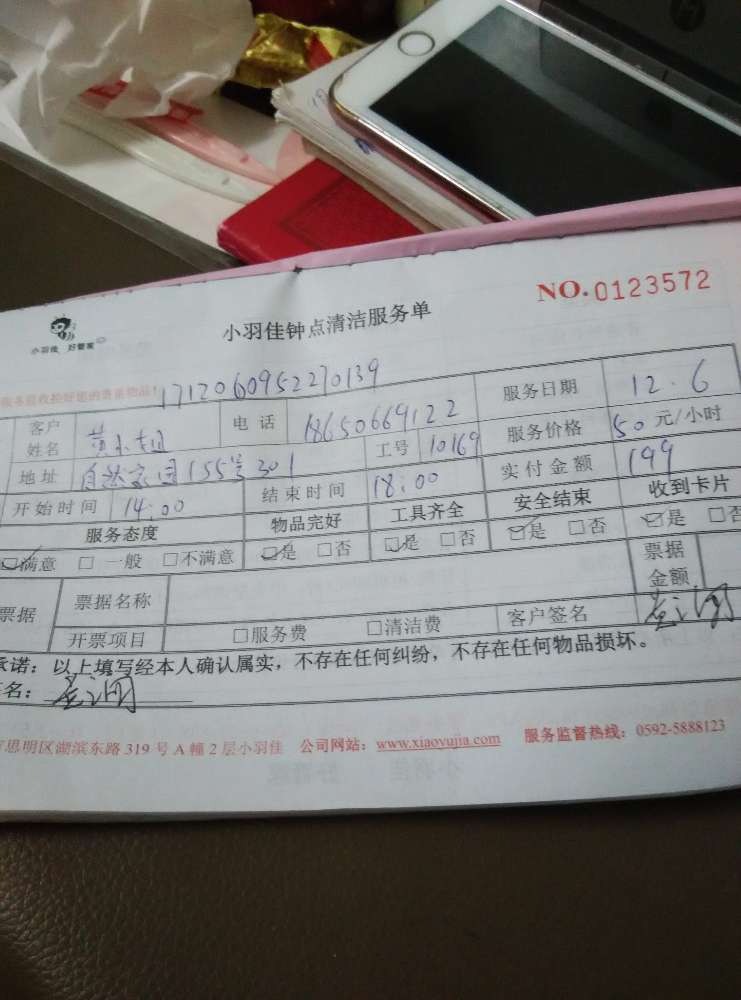 NO.0123572
小羽佳钟点清洁服务单
小羽佳 好管家
1712060952270139
客户姓名 黄小姐 电话 18650669122 服务日期 12.6
地址 自然家园155号301 工号 10169 服务价格 50元/小时
开始时间 14:00 结束时间 18:00 实付金额 199
服务态度 物品完好 工具齐全 安全结束 收到卡片
☑满意 □一般 □不满意 ☑是 □否 ☑是 □否 ☑是 □否 ☑是 □否
票据 票据名称 票据金额
开票项目 □服务费 □清洁费 客户签名
承诺：以上填写经本人确认属实，不存在任何纠纷，不存在任何物品损坏。
名：
思明区湖滨东路319号A幢2层小羽佳 公司网站：www.xiaoyujia.com 服务监督热线：0592-5888123